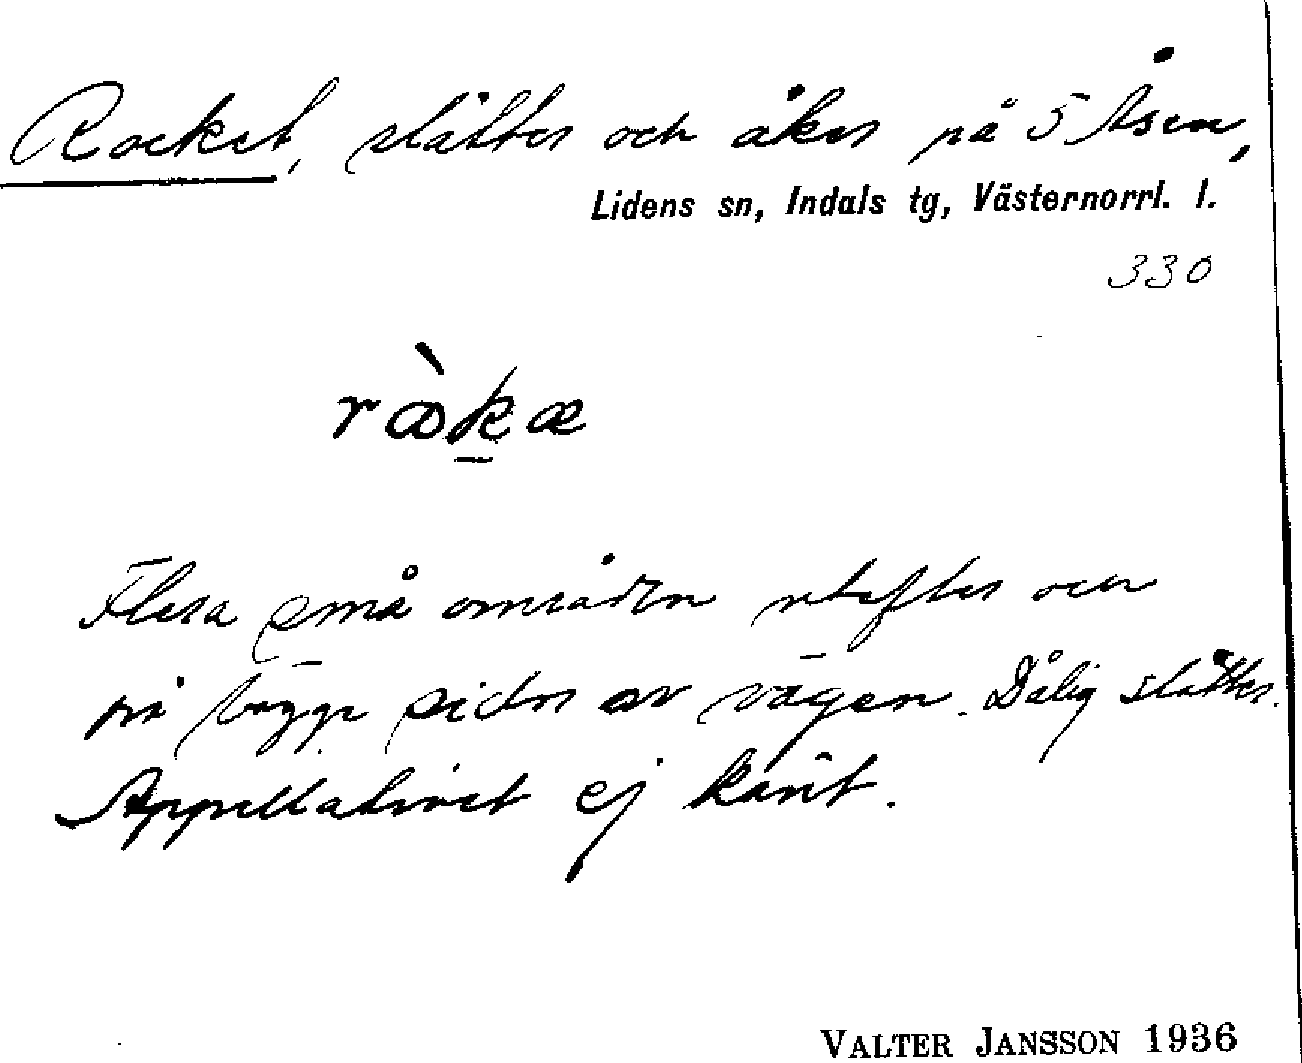 Rocket, slåtter och åker på 5 Åsen,
Lidens sn, Indals tg, Västernorrl. l.
330
ràkæ
Flera små områden utefter och
på bägge sidor av vägen. Dålig slåtter.
Appellativet ej känt.
VALTER JANSSON 1936